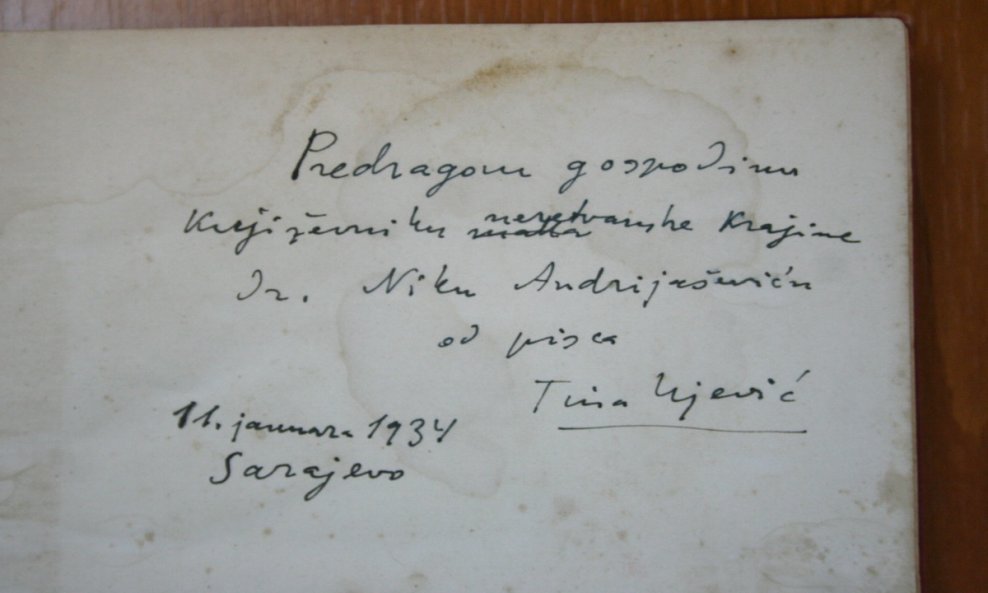 Predragom gospodinu
Književniku neretvanske Krajine
Dr. Niku Andrijaševiću
od pisca
Tina Ujević
11. januara 1934
Sarajevo